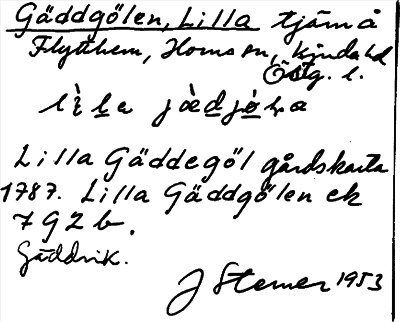 Gäddgölen, Lilla tjärn å
Flytthem, Horns sn, Kinda hd
Östg. l.
Lilla Gäddegöl gårdskarta
1787. Lilla Gäddgölen ek
792 b.
Gäddrik.
J Stemer 1953